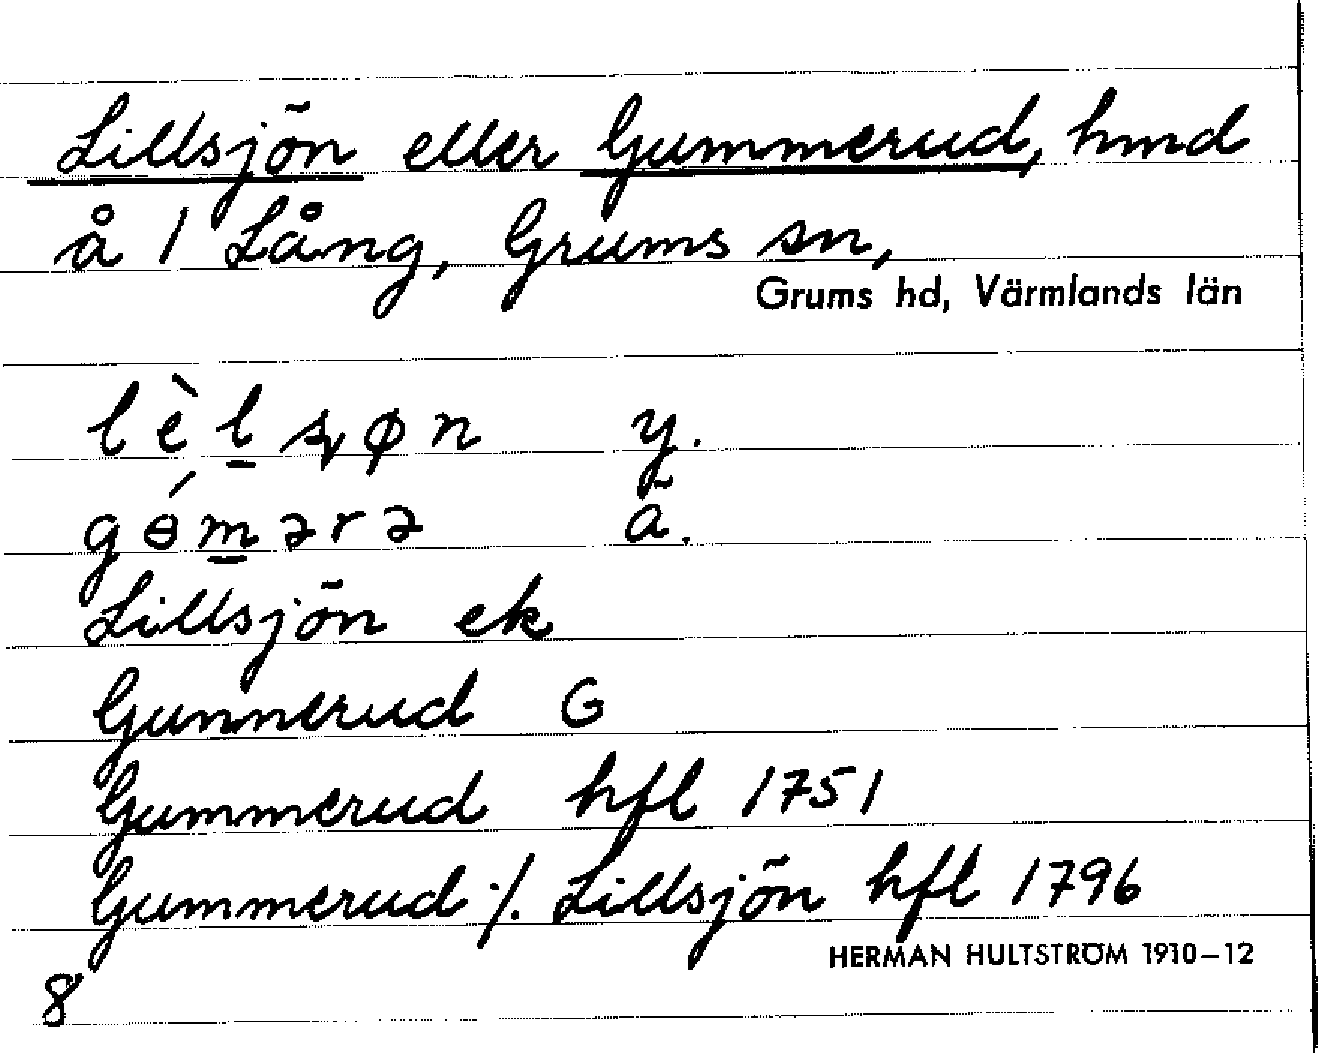 Lillsjön eller Gummerud, hmd
å 1 Lång, Grums sn,
Grums hd, Värmlands län
lèl̲ʂøn y.
gɵ́m̲ərə ä.
Lillsjön ek
Gunnerud G
Gummerud hfl 1751
Gummerud ·/. Lillsjön hfl 1796
HERMAN HULTSTRÖM 1910–12
8